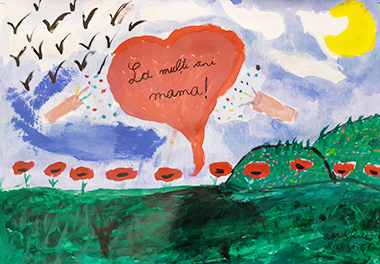 La multi ani
mama!